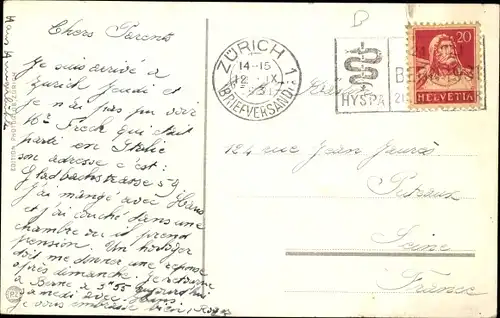 Chers Parents
Je suis arrivé à
Zurich Jeudi et
je n'ai pas pu voir
Mr Froch qui était
parti en Italie
son adresse c'est :
Gladbachstrasse 59
J'ai mangé avec Hans
et j'ai couché dans une
chambre ou il prend
pension. Un horloger
doit me donner une reponse
après dimanche. Je retourne
a Berne à 3h55 aujourd'hui
samedi avec Hans.
Je vous embrasse bien, Roger
ZÜRICH 1
14-15
12. IX.
(BRIEFVERSAND)
HYSPA
BERN 1931
20
HELVETIA
124 rue Jean Jaurès
Puteaux
Seine
France